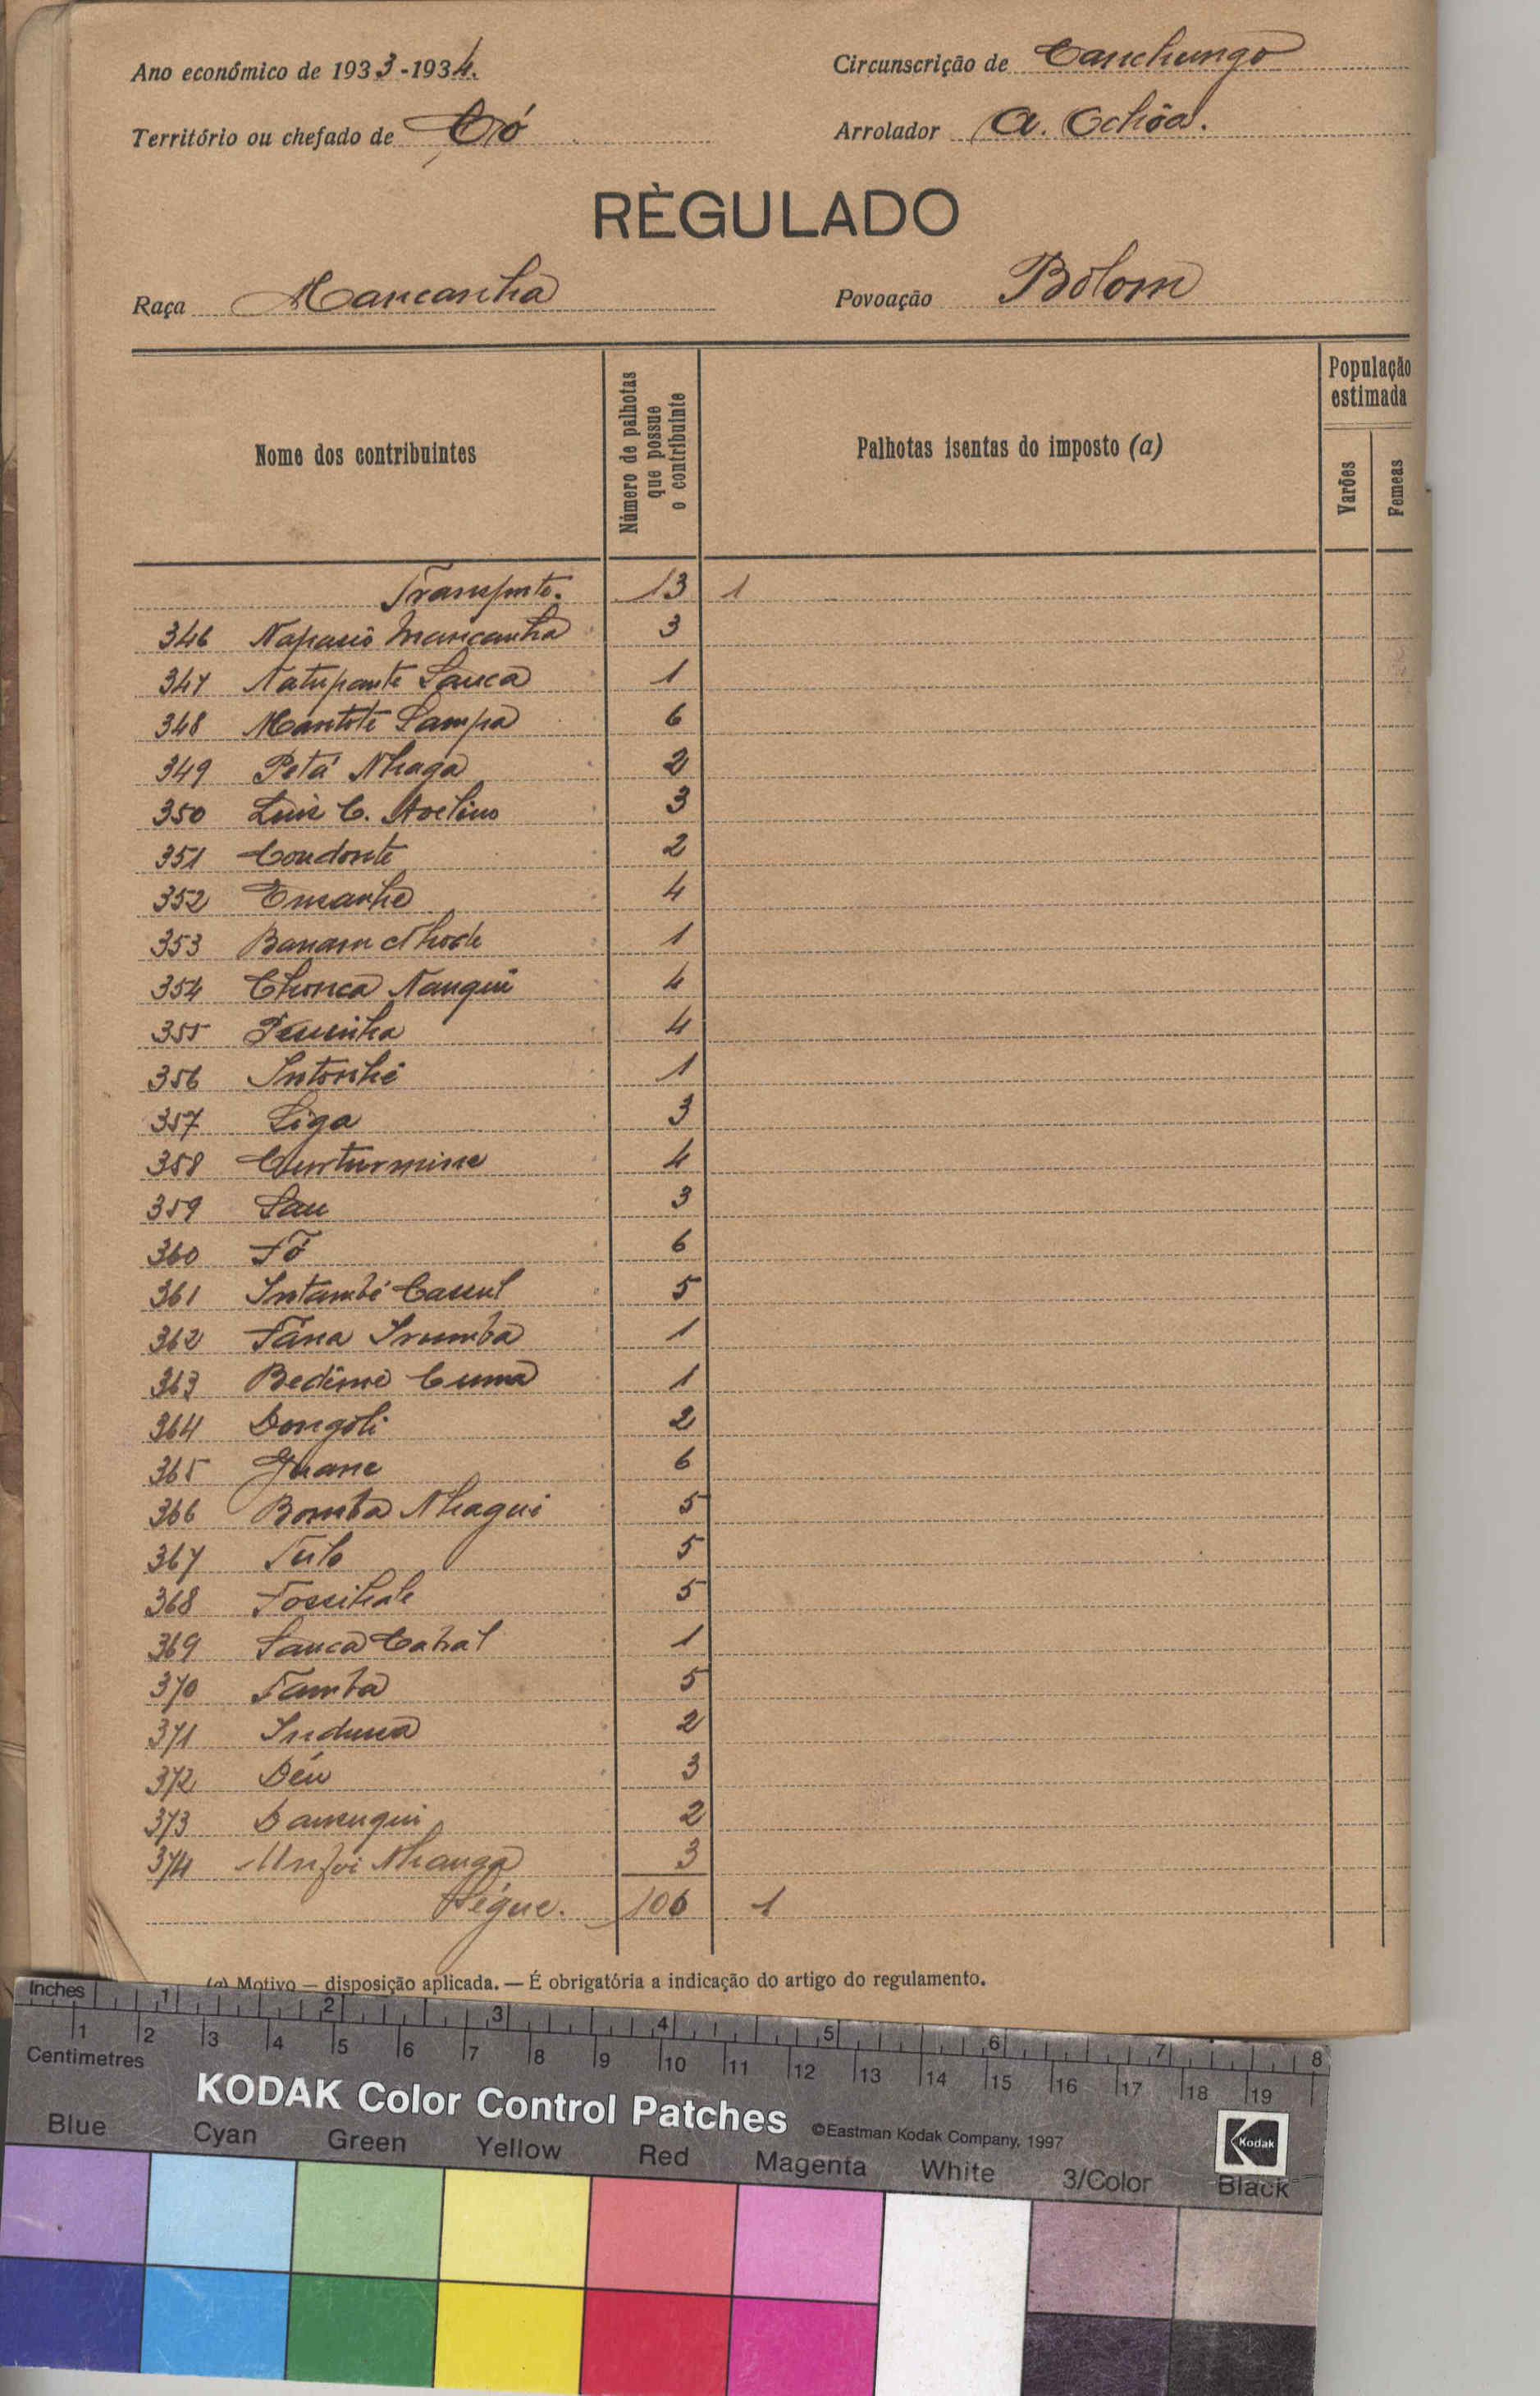 Ano económico de 1933-1934.
Circunscrição de Canchungo
Território ou chefado de Có
Arrolador A. Ochôa.
RÈGULADO
Raça Mancanha
Povoação Bolom
Nome dos contribuintes
Número de palhotas que possue o contribuinte
Palhotas isentas do imposto (a)
População estimada
Varões
Femeas
Transporte. 13 1
346 Mancanha 3
347 Natupante Sanca 1
348 Mantote Sampa 6
349 Petá Nhaga 2
350 Luis C. Avelino 3
351 Condonte 2
352 4
353 Banam 1
354 Chonca Nanqui 4
355 4
356 Intonhé 1
357 Liga 3
358 4
359 Sau 3
360 Fó 6
361 Intambé 5
362 Fána 1
363 Bedime Cuma 1
364 Dongoli 2
365 Juane 6
366 Bomba Nhaqui 5
367 Tulo 5
368 5
369 Sanca Cabral 1
370 Famba 5
371 2
372 Déu 3
373 2
374 Nhanga 3
Ségue. 106 1
(a) Motivo — disposição aplicada. — É obrigatória a indicação do artigo do regulamento.
Inches 1 2 3 4 5 6 7 8
1 2 3 4 5 6 7 8 9 10 11 12 13 14 15 16 17 18 19
Centimetres
KODAK Color Control Patches ©Eastman Kodak Company, 1997 Kodak
Blue Cyan Green Yellow Red Magenta White 3/Color Black